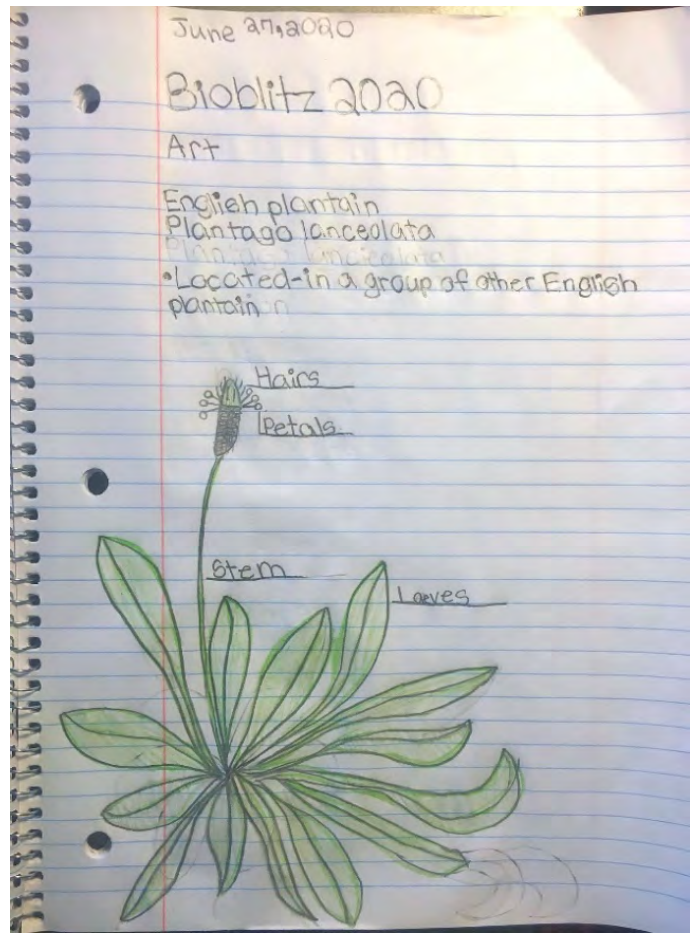 June 27, 2020
Bioblitz 2020
Art
English plantain
Plantago lanceolata
Plantago lanceolata
•Located-in a group of other English
plantain n
Hairs
Petals
Stem
Leaves